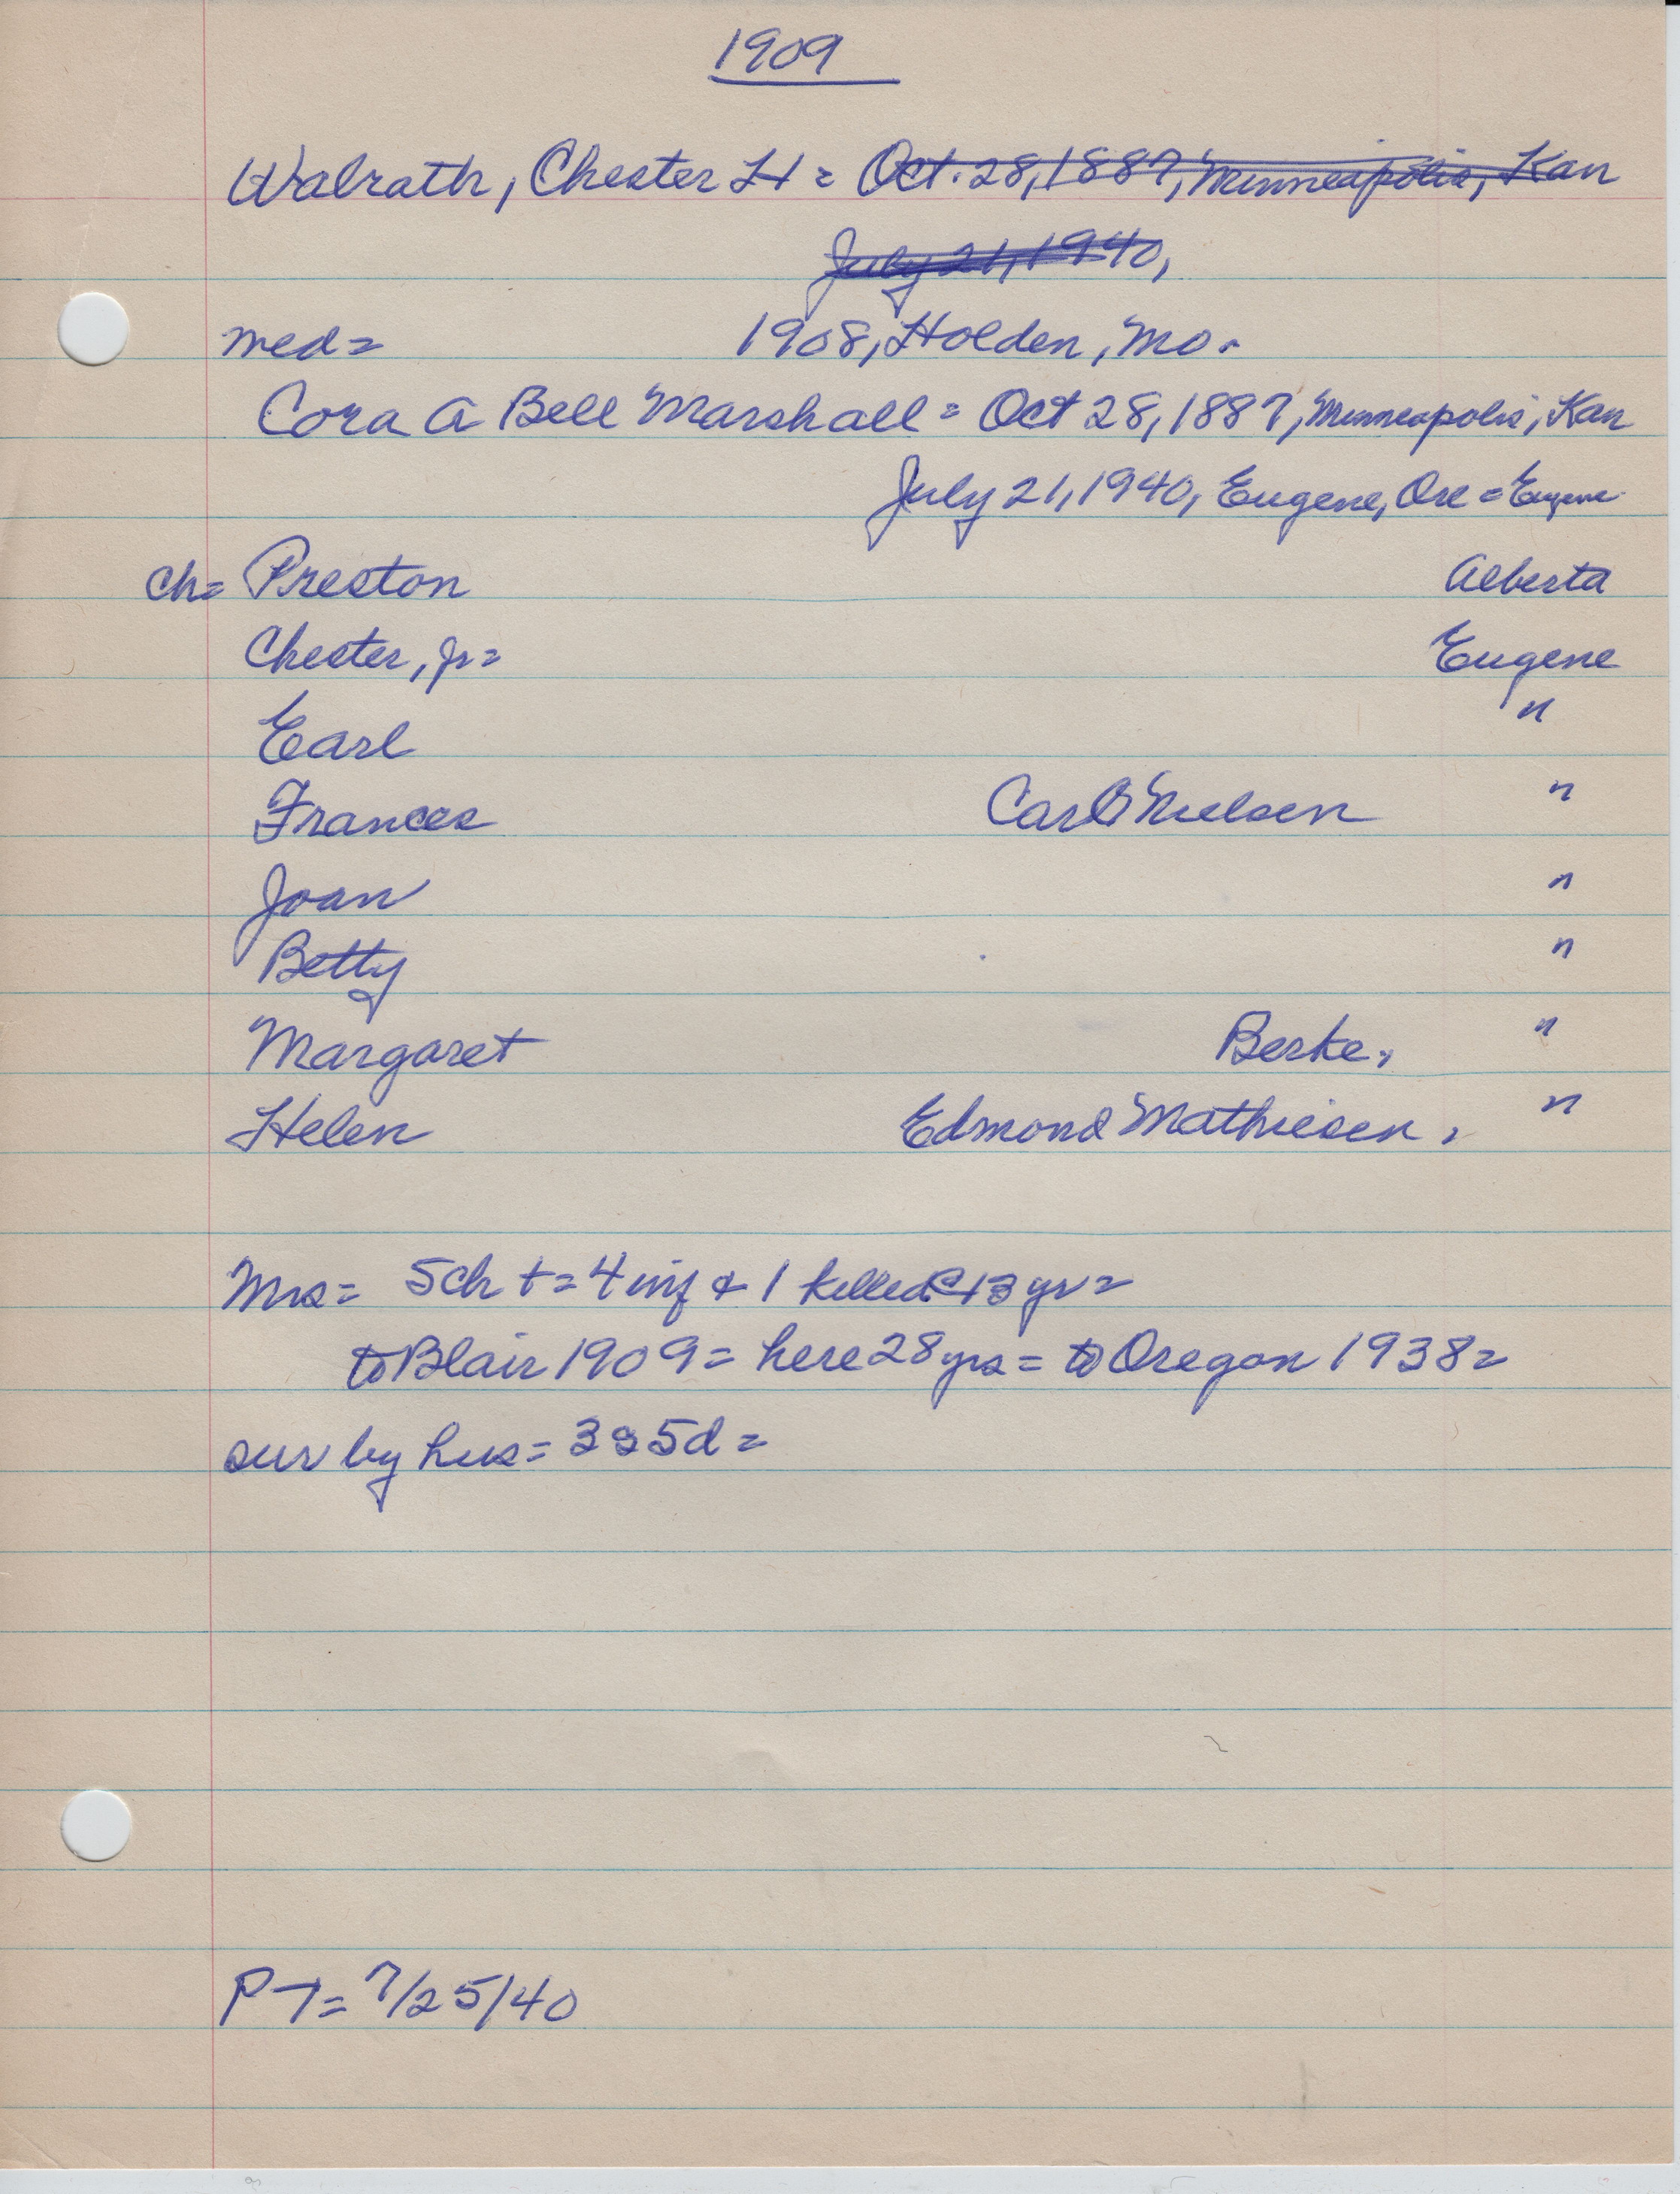 1909
Walrath, Chester H = Oct. 28, 1887, Minneapolis, Kan
July 21, 1940,
med = 1908, Holden, Mo.
Cora A Bell Marshall = Oct 28, 1887, Minneapolis, Kan
July 21, 1940, Eugene, Ore = Eugene
ch = Preston Alberta
Chester, Jr = Eugene
Earl "
Frances Carl Nielsen "
Joan "
Betty "
Margaret Berke, "
Helen Edmond Mathiesen, "
Mrs = 5 ch t = 4 inf & 1 killed @ 13 yr =
to Blair 1909 = here 28 yrs = to Oregon 1938 =
sur by hus = 3s 5d =
PT = 7/25/40